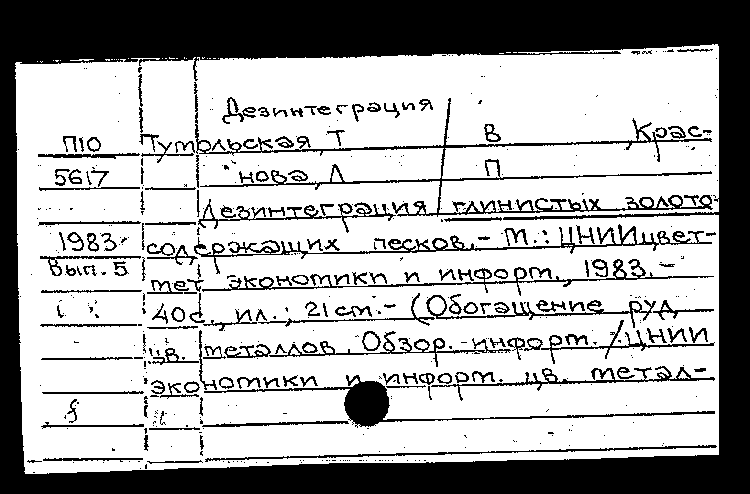 Дезинтеграция
П10 Тумольская, Т В , Крас-
5617 нова, Л П
Дезинтеграция глинистых золото-
1983- содержащих песков.- М.: ЦНИИцвет-
Вып. 5 мет экономики и информ., 1983.-
40с., ил.; 21см.- (Обогащение руд
цв. металлов. Обзор. информ. / ЦНИИ
экономики и информ. цв. метал-